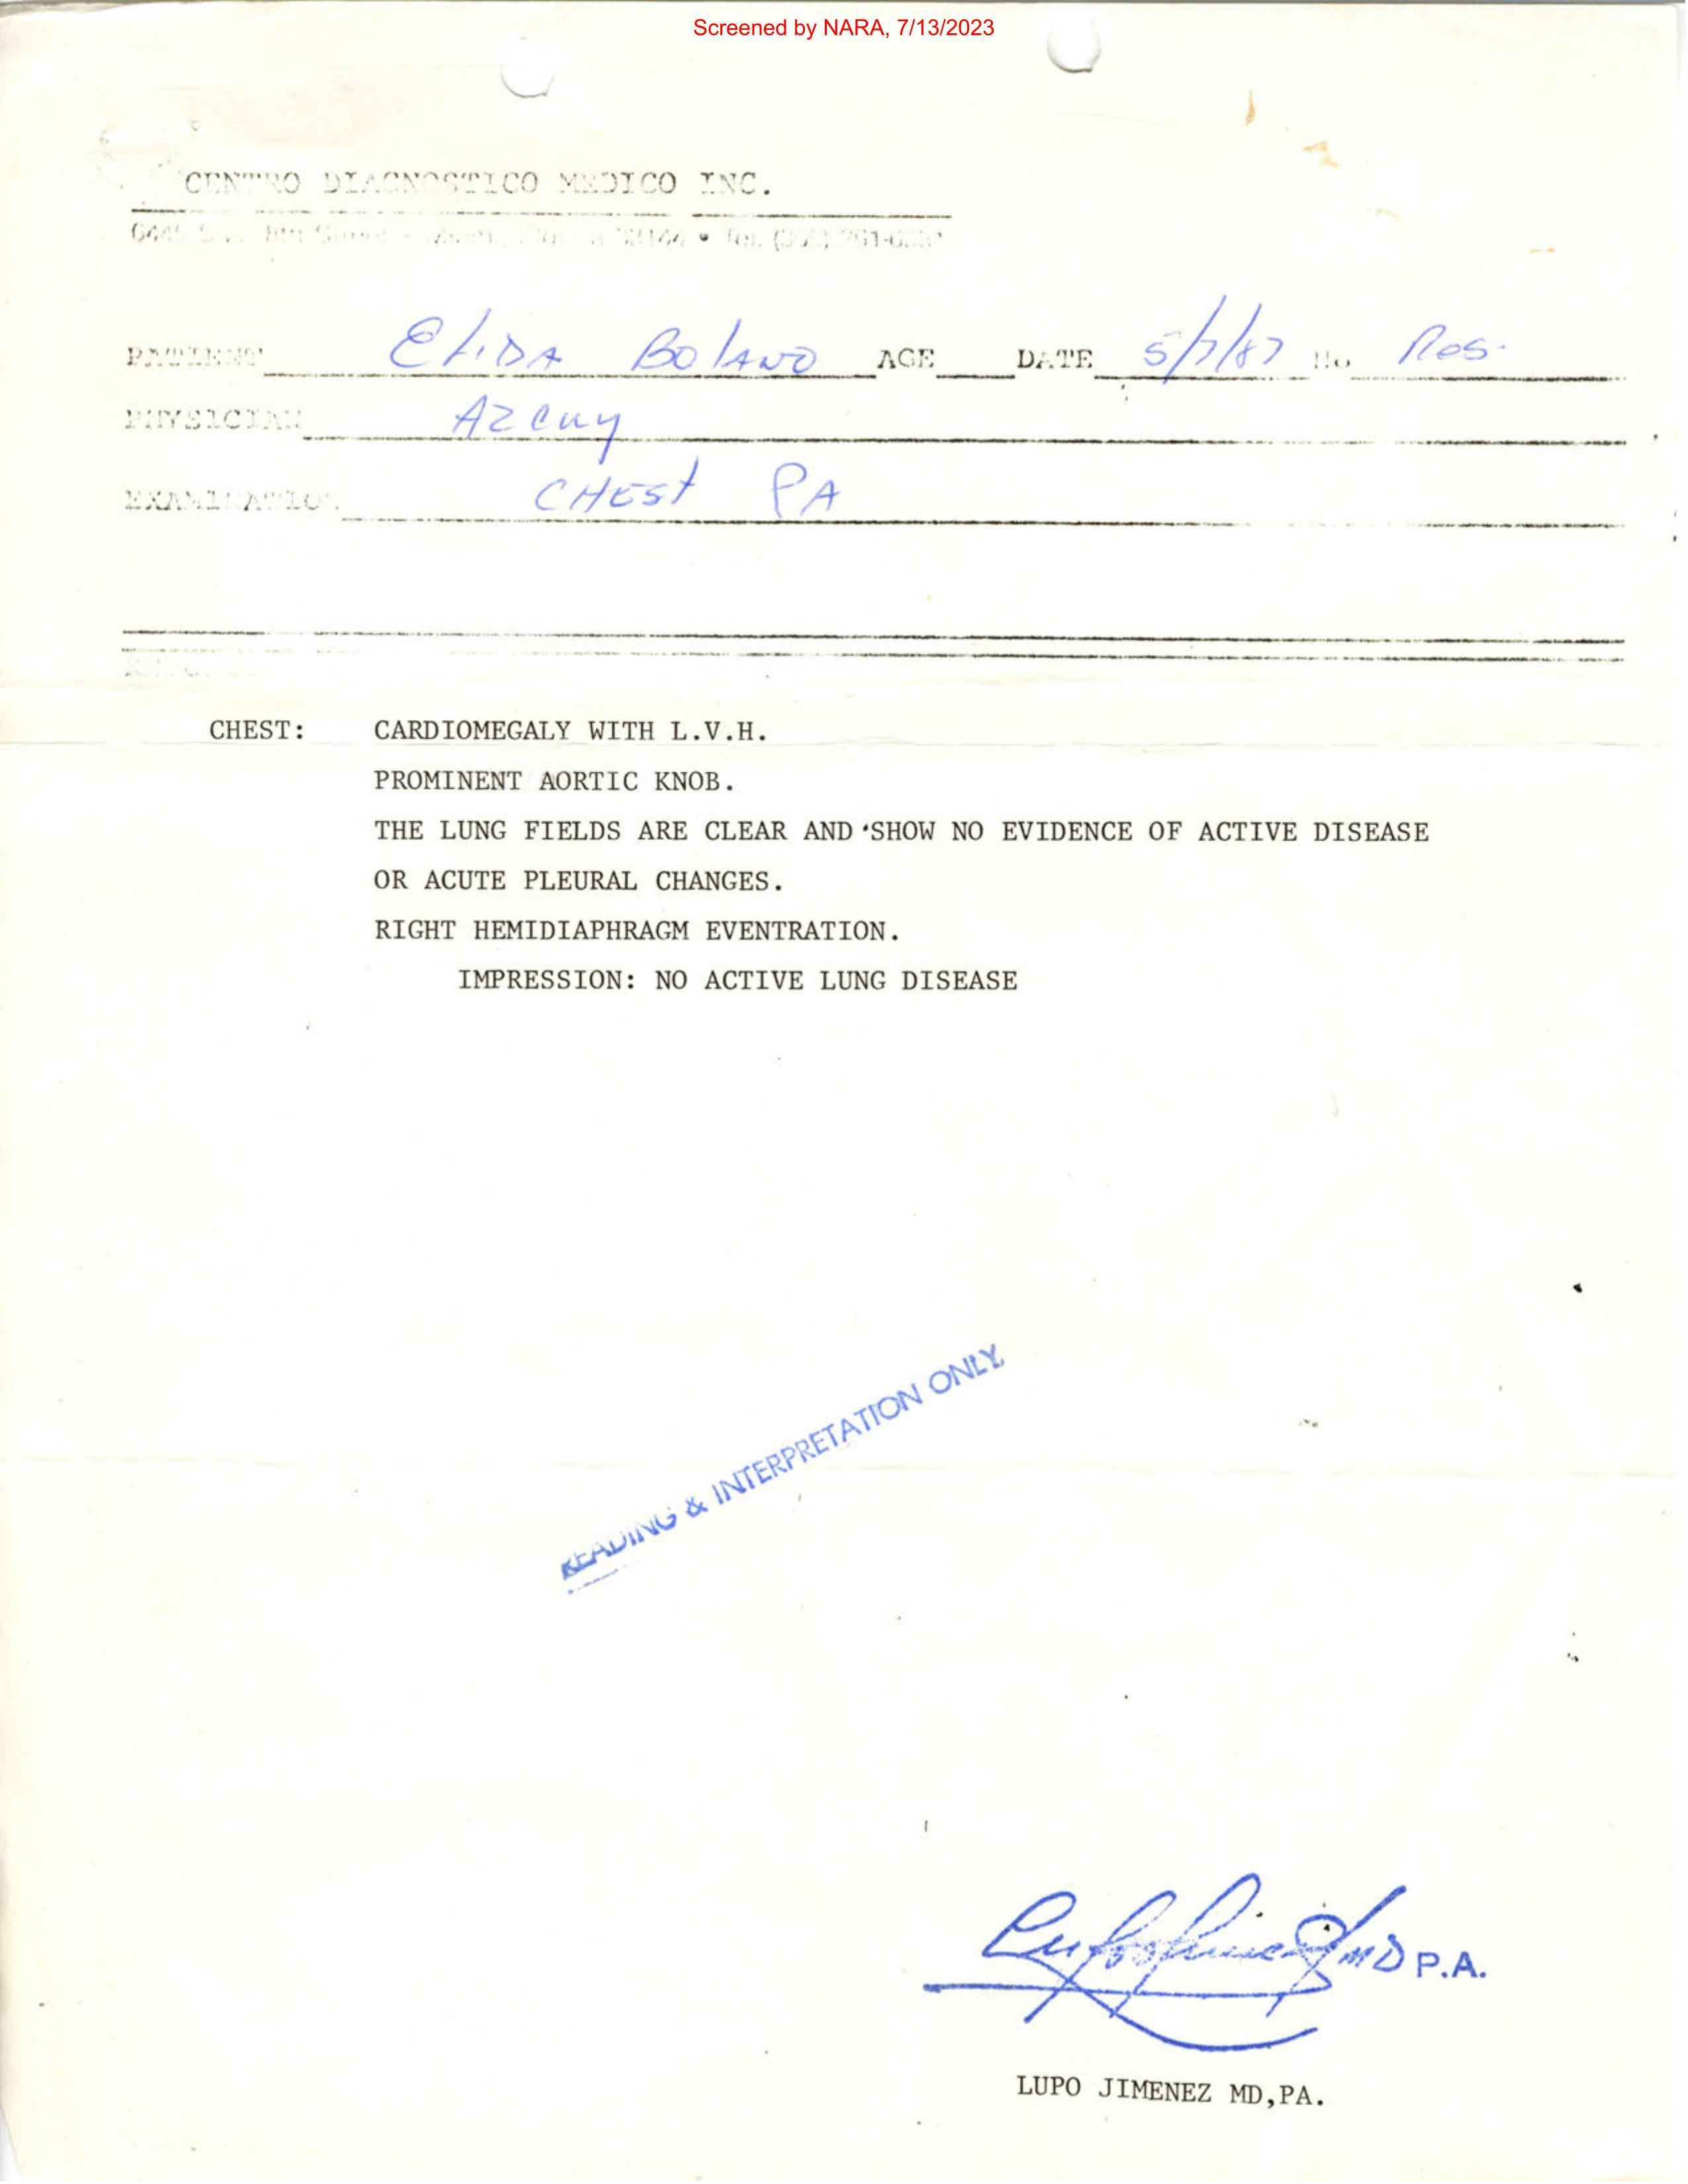 Screened by NARA, 7/13/2023
CENTRO DIAGNOSTICO MEDICO INC.
8th Street • Miami, • Tel. (305)
PATIENT ELIDA BOLANO AGE DATE 5/7/87 No Res.
PHYSICIAN Azcuy
EXAMINATION CHEST PA
CHEST: CARDIOMEGALY WITH L.V.H.
PROMINENT AORTIC KNOB.
THE LUNG FIELDS ARE CLEAR AND SHOW NO EVIDENCE OF ACTIVE DISEASE
OR ACUTE PLEURAL CHANGES.
RIGHT HEMIDIAPHRAGM EVENTRATION.
IMPRESSION: NO ACTIVE LUNG DISEASE
READING & INTERPRETATION ONLY
MD P.A.
LUPO JIMENEZ MD,PA.